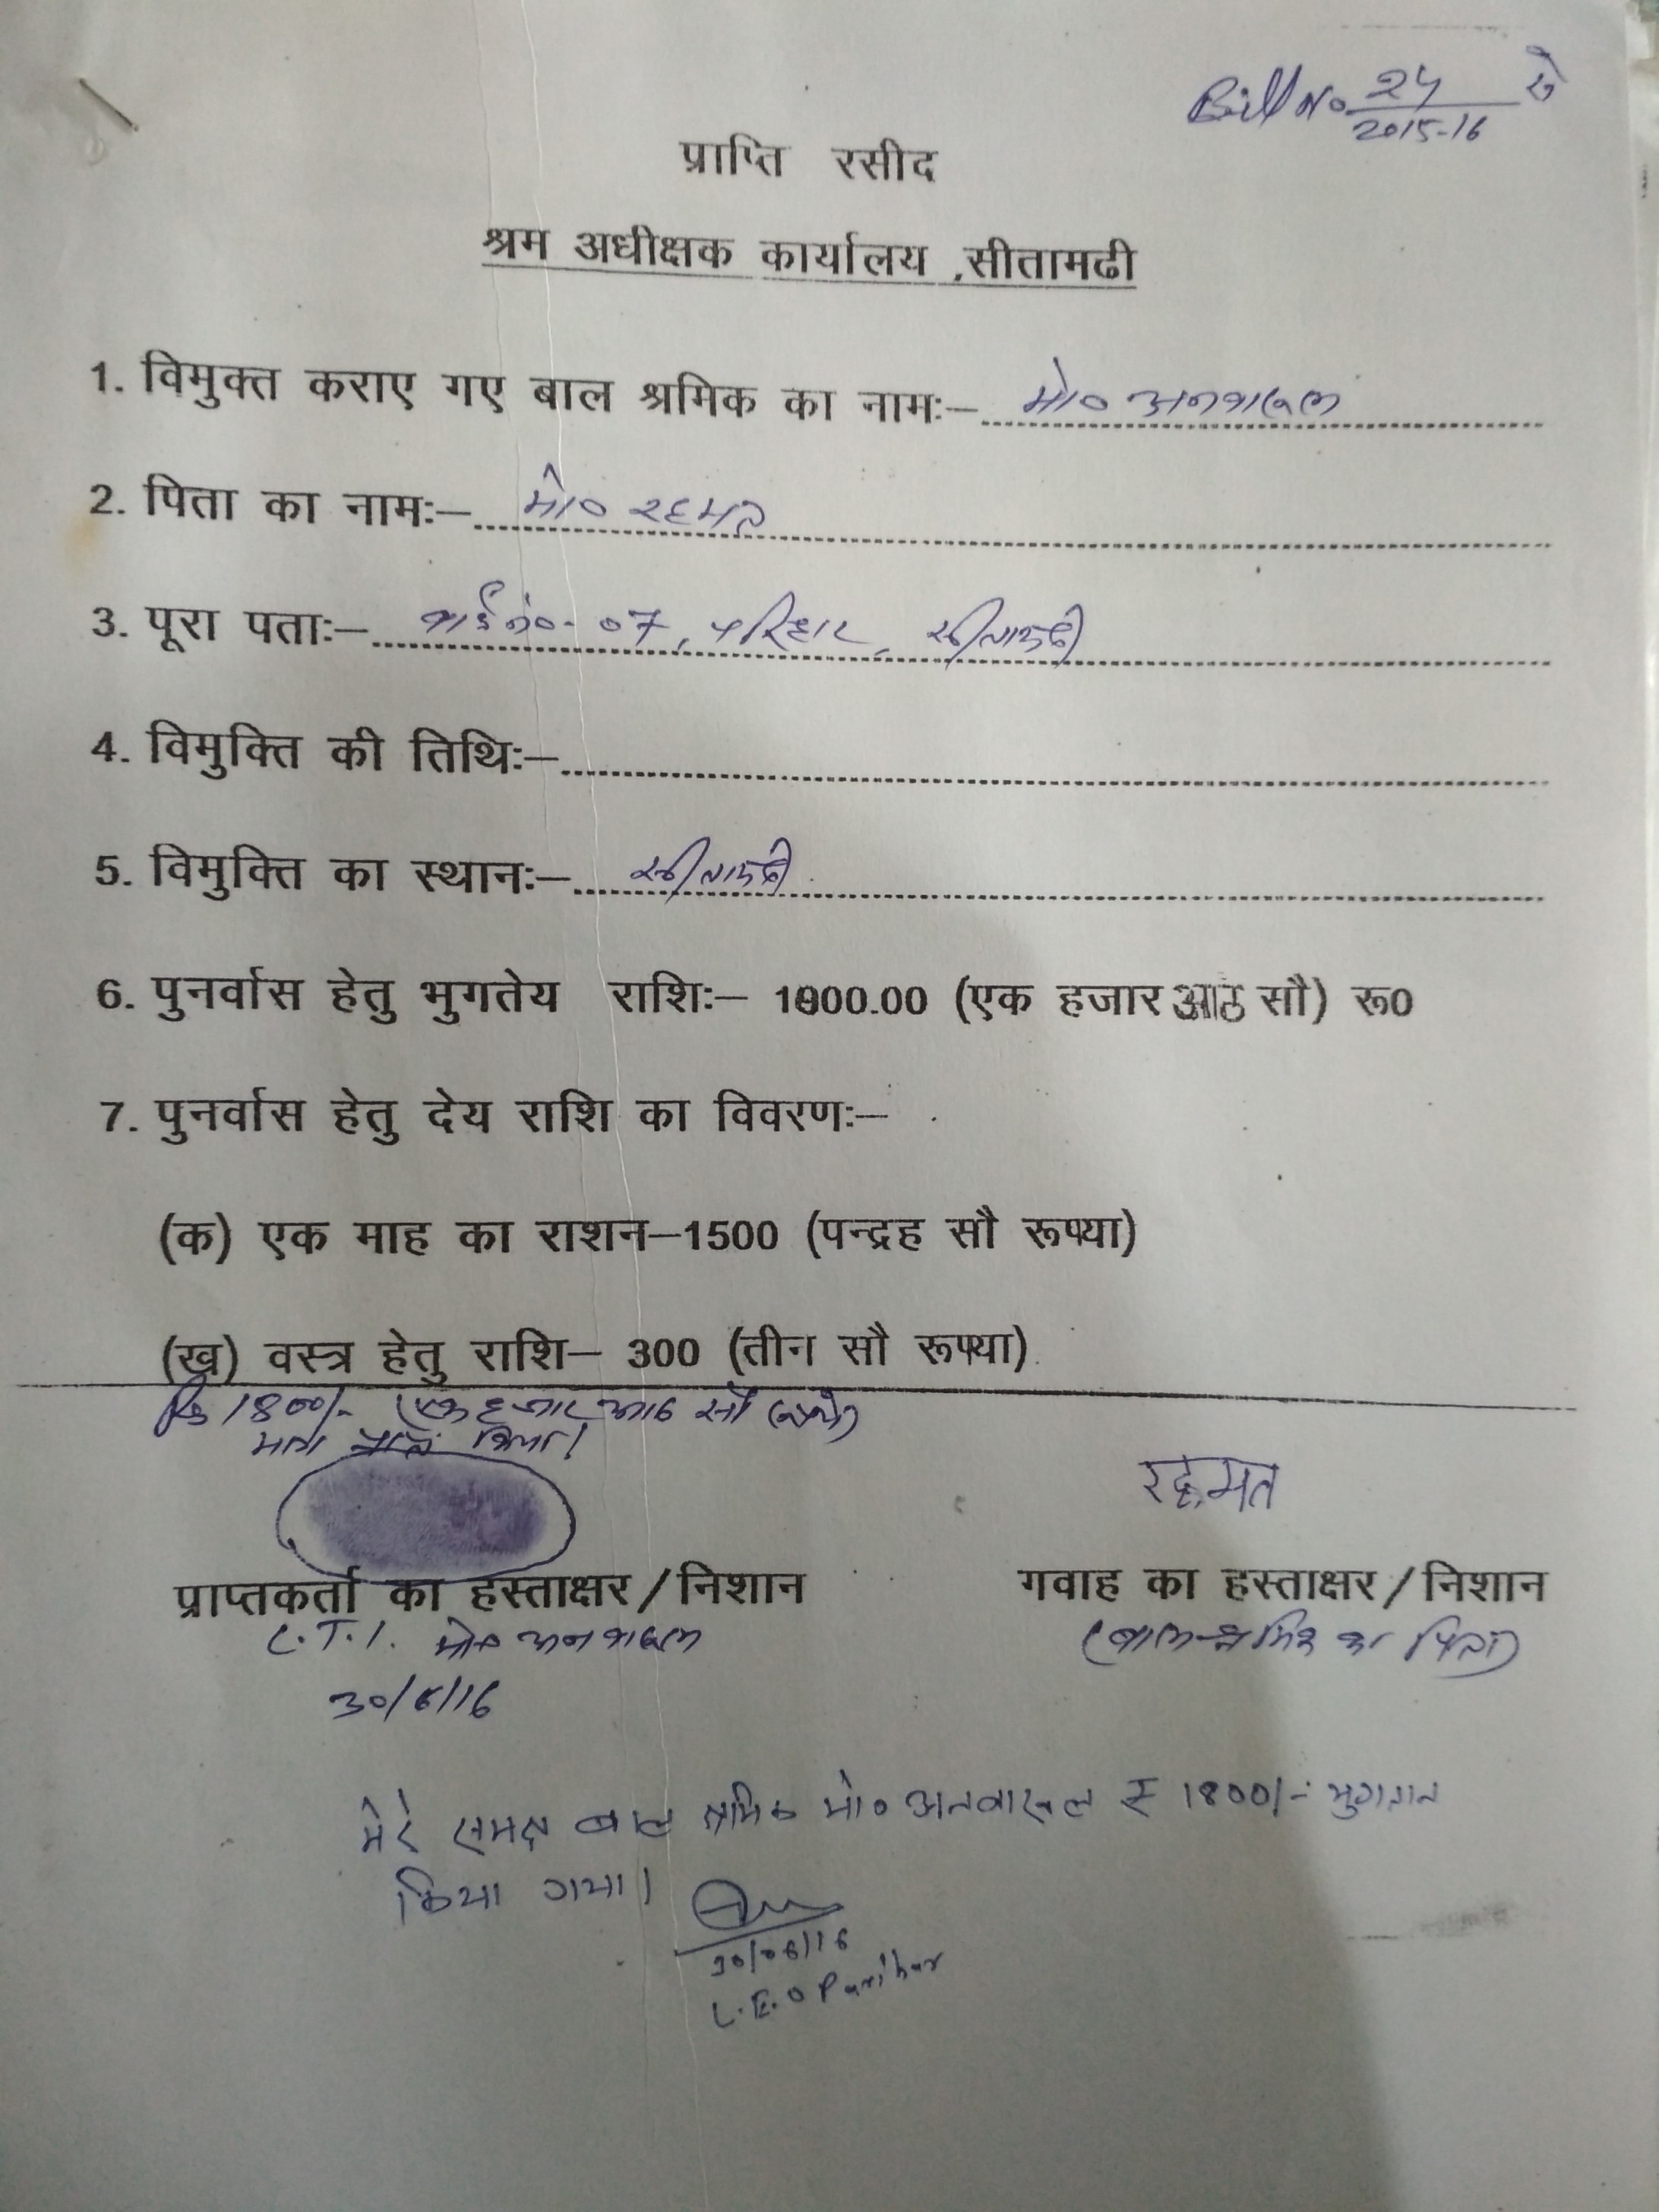 Bill No. 24/2015-16 से
प्राप्ति रसीद
श्रम अधीक्षक कार्यालय ,सीतामढी
1. विमुक्त कराए गए बाल श्रमिक का नामः– मो० अनवारूल
2. पिता का नामः– मो० रहमत
3. पूरा पताः– वार्ड नं०- 07, परिहार, सीतामढी
4. विमुक्ति की तिथिः–
5. विमुक्ति का स्थानः– सीतामढी
6. पुनर्वास हेतु भुगतेय राशिः– 1800.00 (एक हजार आठ सौ) रू0
7. पुनर्वास हेतु देय राशि का विवरणः–
(क) एक माह का राशन–1500 (पन्द्रह सौ रूप्या)
(ख) वस्त्र हेतु राशि– 300 (तीन सौ रूप्या)
1800/- (एक हजार आठ सौ रूपये)
मात्र प्राप्त किया।
रहमत
प्राप्तकर्ता का हस्ताक्षर/निशान
गवाह का हस्ताक्षर/निशान
L.T.I. मो० अनवारूल
(बाल-श्रमिक का पिता)
30/6/16
मेरे समक्ष बाल श्रमिक मो० अनवारूल ₹ 1800/- भुगतान
किया गया।
30/06/16
L.E.O Parihar